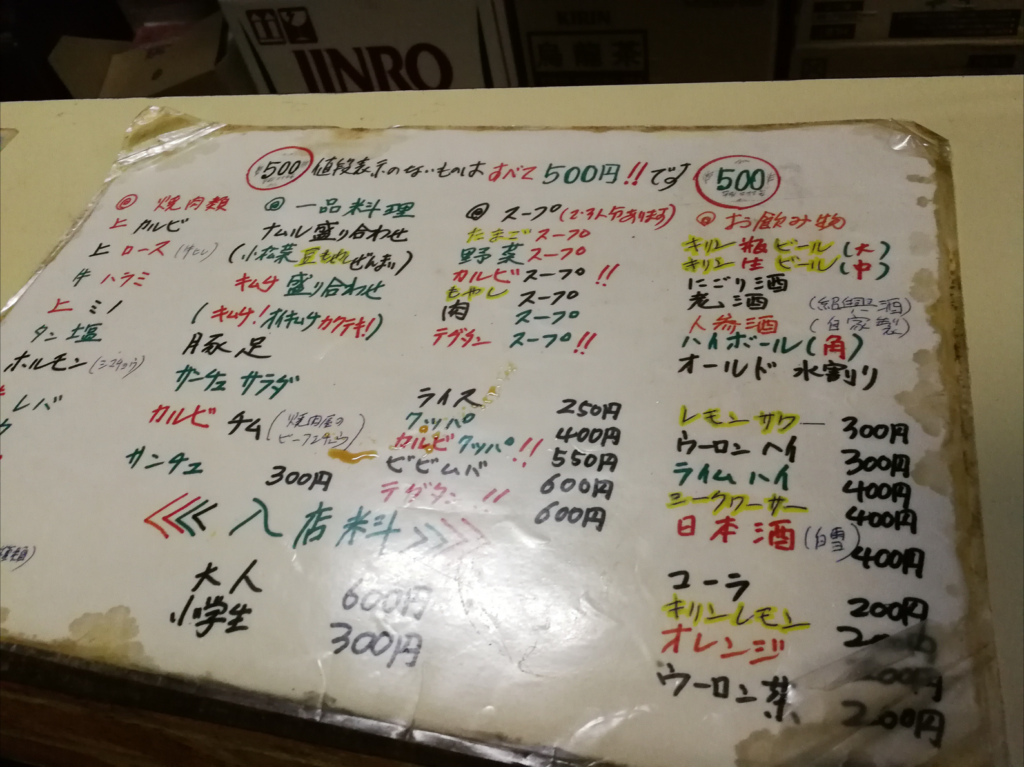 JINRO
KIRIN
烏龍茶
500 値段表示のないものは すべて 500円!! です 500
◎ 焼肉類
上 カルビ
上 ロース
牛 ハラミ
上 ミノ
タン 塩
ホルモン (シマチョウ)
レバ
◎ 一品料理
ナムル 盛り合わせ
(小松菜 豆もやし ぜんまい)
キムチ 盛り合わせ
(キムチ! オイキムチ カクテキ!)
豚足
サンチュ サラダ
カルビ チム (焼肉屋の ビーフシチュウ)
サンチュ 300円
◎ スープ (2・3人分あります)
たまご スープ
野菜 スープ
カルビ スープ !!
もやし スープ
肉 スープ
テグタン スープ !!
ライス 250円
クッパ 400円
カルビ クッパ !! 550円
ビビムバ 600円
テグタン !! 600円
◎ お飲み物
キリン 瓶 ビール (大)
キリン 生 ビール (中)
にごり酒
老酒 (紹興酒)
人参酒 (自家製)
ハイボール (角)
オールド 水割り
レモン サワー 300円
ウーロン ハイ 300円
ライム ハイ 400円
シークワーサー 400円
日本酒 (白雪) 400円
コーラ 200円
キリンレモン
オレンジ
ウーロン茶 200円
入店料
大人 600円
小学生 300円